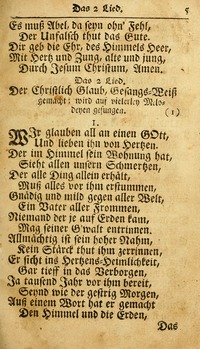 Das 2 Lied. 5
Es muß Abel, da seyn ohn' Fehl,
Der Unfalsch thut das Gute.
Dir geb die Ehr, des Himmels Heer,
Mit Hertz und Zung, alte und jung,
Durch Jesum Christum, Amen.
Das 2 Lied.
Der Christlich Glaub, Gesangs-Weiß
gemacht: wird auf vielerley Melo-
deyen gesungen. (1)
1.
WIr glauben all an einen GOtt,
Und lieben ihn von Hertzen.
Der im Himmel sein Wohnung hat,
Sieht allen unsern Schmertzen,
Der alle Ding allein erhält,
Muß alles vor ihm erstummen,
Gnädig und mild gegen aller Welt,
Ein Vater aller Frommen,
Niemand der je auf Erden kam,
Mag seiner G'walt entrinnen.
Allmächtig ist sein hoher Nahm,
Kein Stärck thut ihm zerrinnen,
Er sicht ins Hertzens-Heimlichkeit,
Gar tieff in das Verborgen,
Ja tausend Jahr vor ihm bereit,
Seynd wie der gestrig Morgen,
Auß einem Wort hat er gemacht
Den Himmel und die Erden,
Das